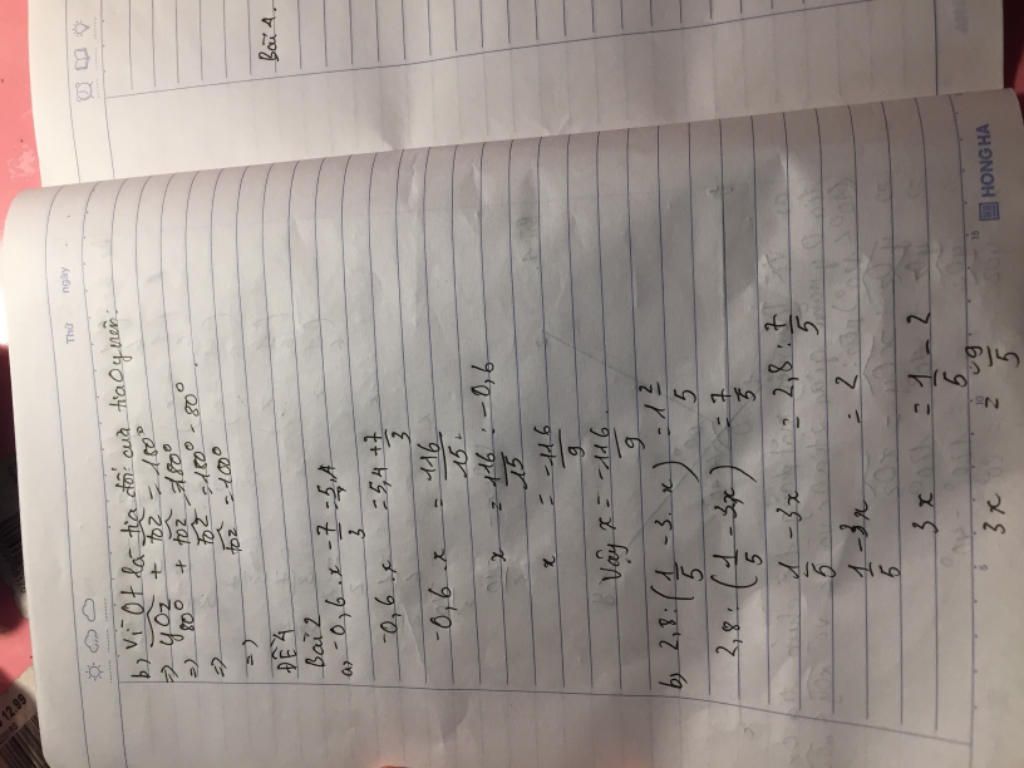 Bài 4.
Thứ
ngày
b) Vì Ot là tia đối của tia Oy nên:
=> yOz + tOz = 180°
=> 80° + tOz = 180°
=> tOz = 180° - 80°
=> tOz = 100°
ĐỀ 4
Bài 2
a) -0,6.x - 7/3 = 5,4
-0,6.x = 5,4 + 7/3
-0,6.x = 116/15
x = 116/15 : -0,6
x = -116/9
Vậy x = -116/9
b) 2,8 : (1/5 - 3.x) = 1 2/5
2,8 : (1/5 - 3x) = 7/5
1/5 - 3x = 2,8 : 7/5
1/5 - 3x = 2
3x = 1/5 - 2
3x = -9/5
HONG HA
12.99